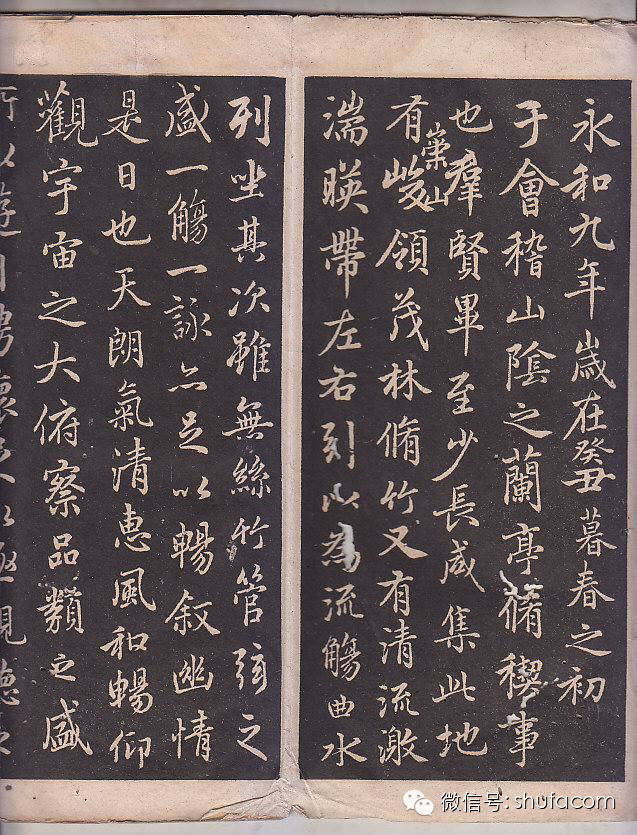 永和九年歲在癸丑暮春之初
于會稽山陰之蘭亭脩稧事
也羣賢畢至少長咸集此地
有崇山峻領茂林脩竹又有清流激
湍暎帶左右引以為流觴曲水
列坐其次雖無絲竹管弦之
盛一觴一詠亦足以暢叙幽情
是日也天朗氣清惠風和暢仰
觀宇宙之大俯察品類之盛
所以遊目騁懷足以極視聽之
微信号: shufacom